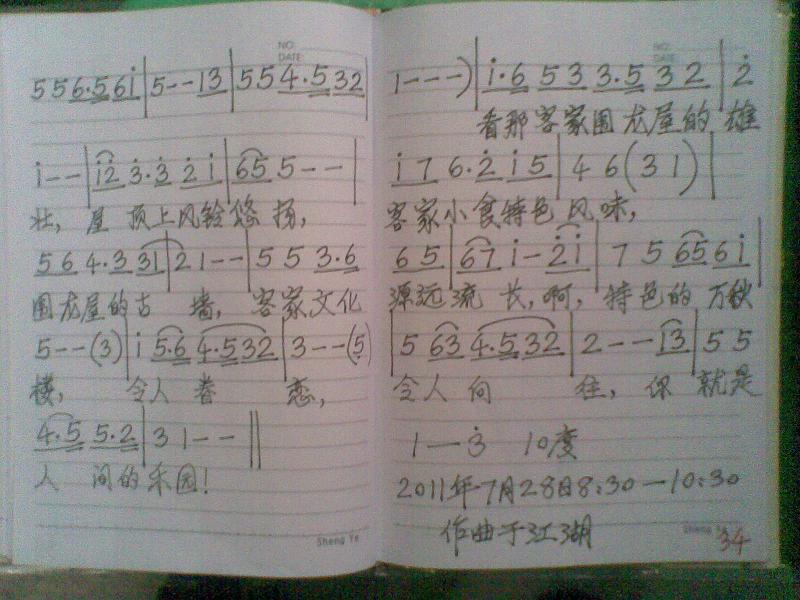 NO:
DATE:
NO:
DATE:
5 5 6·5 6 i | 5 - - 1 3 | 5 5 4·5 3 2 | 1 - - - ) | i·6 5 3 3·5 3 2 | 2
看那客家围龙屋的雄
i - - | i 2 3·3 2 i | 6 5 5 - - | i 7 6·2 i 5 | 4 6 ( 3 1 ) |
壮，屋顶上风铃悠扬，客家小食特色风味，
5 6 4·3 3 1 | 2 1 - - | 5 5 3·6 6 5 | 6 7 i - 2 i | 7 5 6 5 6 i |
围龙屋的古墙，客家文化源远流长，啊，特色的万秋
5 - - (3) | i 5·6 4·5 3 2 | 3 - - (5) | 5 6 3 4·5 3 2 | 2 - - - 1 3 | 5 5
楼，令人眷恋，令人向往，你就是
4·5 5·2 | 3 1 - - ‖
人间的乐园！
1 — 3 10度
2011年7月28日8:30—10:30
作曲于江湖
Sheng Ye
Sheng Ye
34